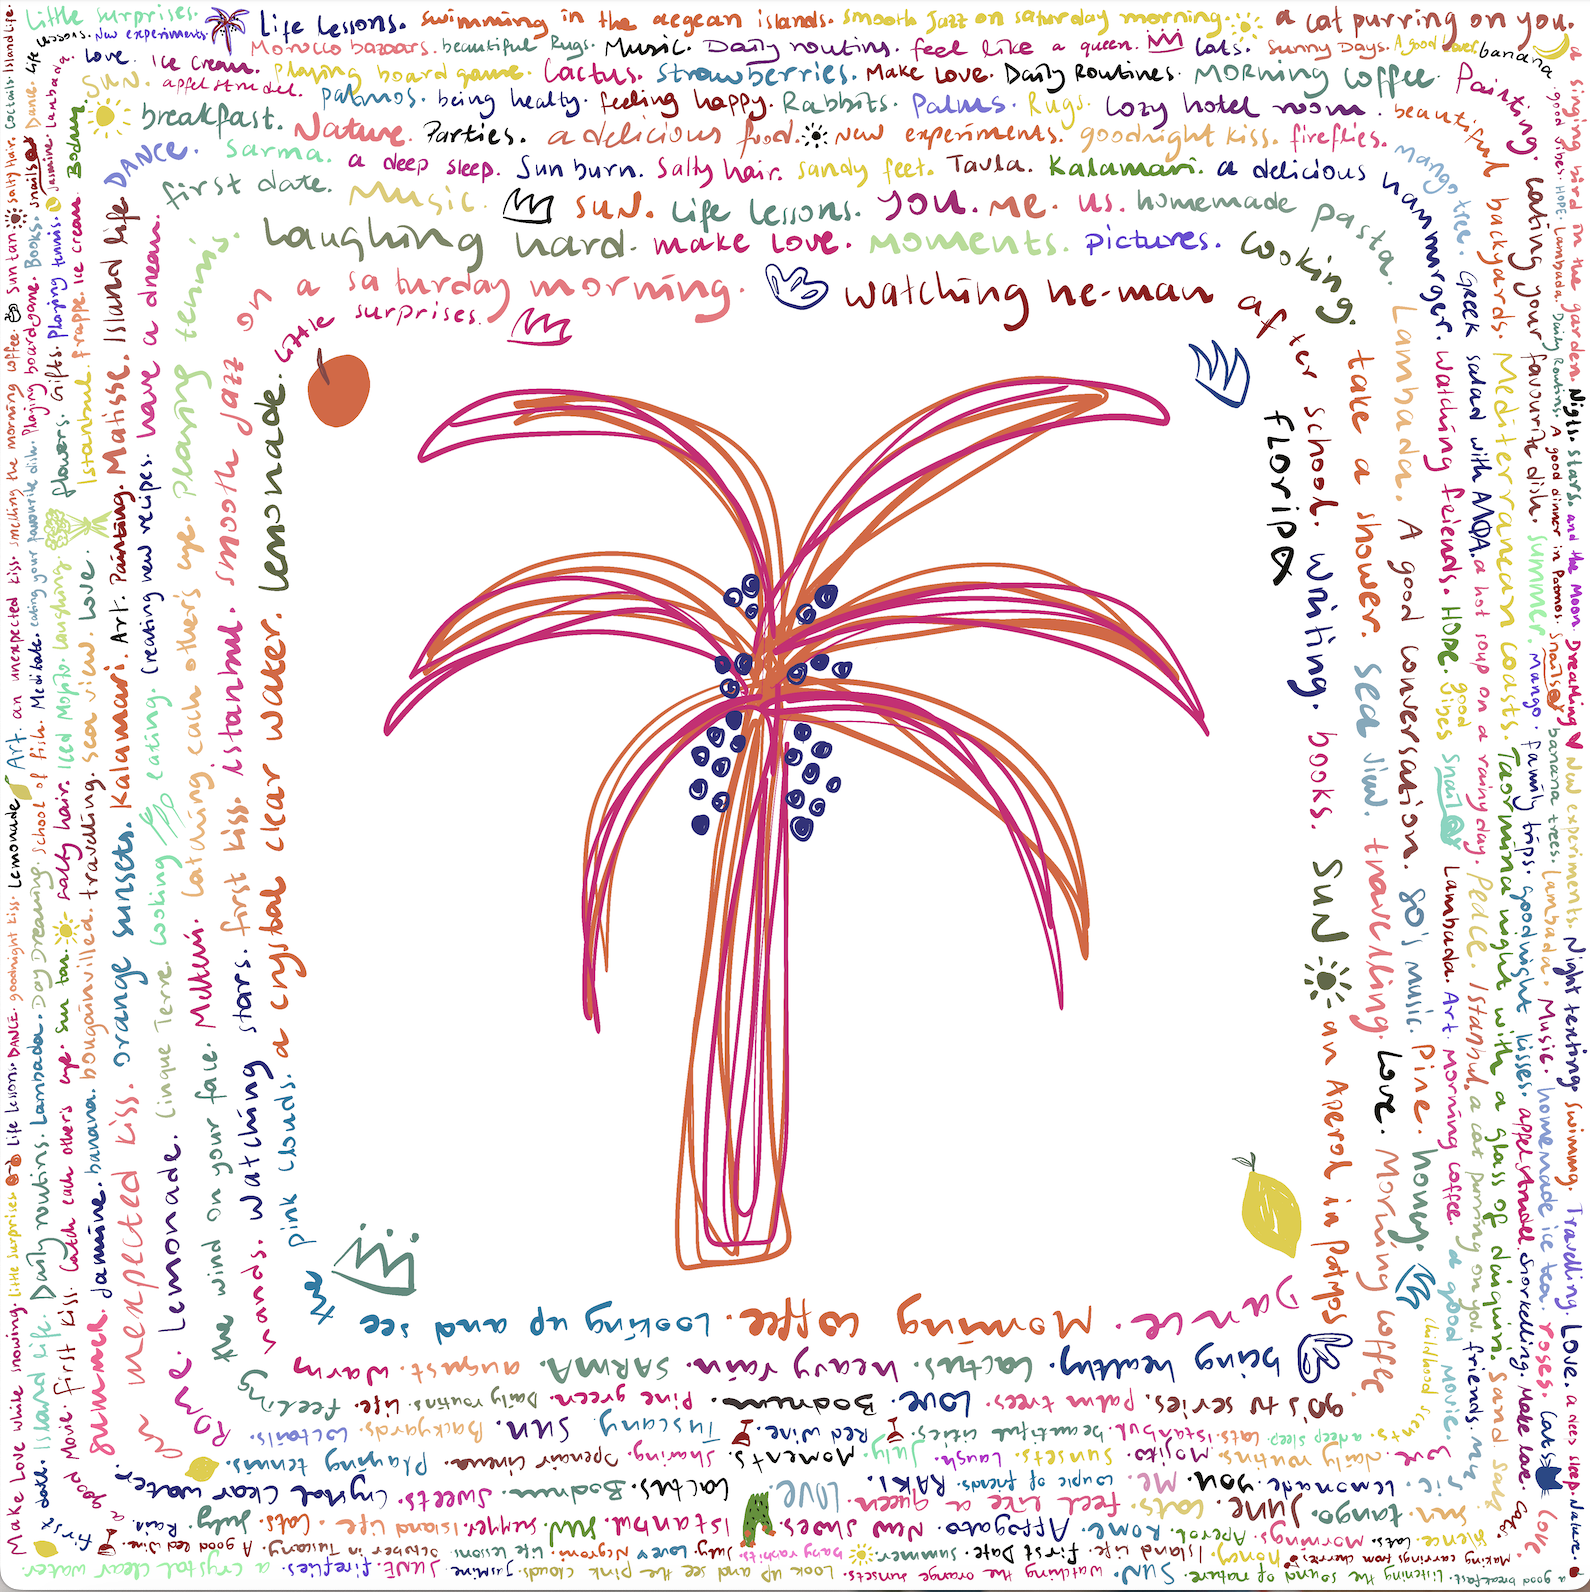 Little surprises.
Life lessons. swimming in the aegean islands. smooth jazz on saturday morning.
a cat purring on you.
lessons. New experiments.
Morocco bazaars. beautiful Rugs. Music. Daily routins. feel like a queen. Cats. Sunny Days. A good lover. banana
Love. Ice cream. Playing board game. Cactus. Strawberries. Make Love. Daily Routines. MORNING Coffee. Painting.
SUN. apfelstrudel. palmos. being healty. feeling happy. Rabbits. Palms. Rugs. Cozy hotel room. beautiful backyards. Mediterranean coasts. Taormina night with a glass of daiquiri. Sand.
breakfast. Nature. Parties. a delicious food. New experiments. goodnight kiss. fireflies. mango tree. Greek salad with
DANCE. Sarma. a deep sleep. Sun burn. Salty hair. sandy feet. Tavla. Kalamari. a delicious hammurger. Watching friends. HOPE. good vibes
first date. Music. SUN. Life lessons. You. me. us. homemade pasta.
laughing hard. make love. moments. pictures. cooking.
on a saturday morning. watching he-man after school. writing. books. SUN
Little surprises.
FLORIPA
an Aperol in Patmos
take a shower. sea view. travelling. Love. Morning coffe
Lambada. A good conversation. 80's music. Pine. honey.
snail
Lambada. Art. Morning coffee. a good movie.
a hot soup on a rainy day. Peace. Istanbul. a cat purring on you. friends.
childhood scents.
eating your favourite dish. summer. Mango. family trips. goodnight kisses. apfelstrudel. snorkelling. Make love. Cats.
a singing bird in the garden. Night. stars. and the Moon. Dreaming
good vibes. HOPE. Lambada. Daily Routins. A good dinner in Patmos. snails
banana trees. Lambada. Music. homemade ice tea. roses. Cats. Love.
New experiments. Night tenting. Swimming. Travelling. Love. a deep sleep. Nature.
Dance. Morning coffee. Looking up and see the pink clouds. a crystal clear water. lemonade.
being healthy. Cactus. heavy rain. SARMA. august. warm sands. Watching stars. first kiss. istanbul. smooth jazz
90's tv series. palm trees. Love. Bodrum. Pine green. Daily routins. Life. feeling the wind on your face. Melkwi. Catching each other's eye. Playing tennis.
a deep sleep. Cats. Istanbul. beautiful cities. Red wine. Tuscany. SUN. Backyards. Coctails. Rome. Lemonade. Cinque Terre. Cooking. eating. Creating new recipes. have a dream.
Love. daily routins. Mojito. sunsets. Laugh. July. Moments. sharing. Openair cinema. Playing tennis.
an unexpected kiss. orange sunsets. Kalamari. Art. Painting. Matisse. Island life.
Lemonade. you. Me. couple of friends. RAKI. LOVE. Cactus. Bodrum. sweets. Crystal clear water.
summer. Jasmine. banana. bougainvillea. travelling. sea view. Love. Istanbul. frappe. ice cream. Bodrum.
sun. tango. JUNE. Cats. feel like a queen.
Mornings. Aperol. Rome. Affogato. New shoes. SUN. Istanbul. summer. Island Life. Cats. July. Rain.
science. Cats. honey. Island Life. First Date. summer. baby rabbits. July. Love. Negroni. Life lessons. October in Tuscany. A good Red wine.
Making earrings from cherries.
a good breakfast. Listening the sound of nature. SUN. watching the orange sunsets. Look up and see the pink clouds. Jasmine. JUNE. fireflies. a crystal clear water.
a good Movie. first kiss. Catch each other's eye. sun tan. salty hair. Iced Mojito. laughing. flowers. Gifts. Playing tennis. Jasmine. Lambada.
first date. Island life. Daily routins. Lambada. Day Dreaming. school of fish. Meditate. eating your favourite dish. Playing boardgame. Books. snails. Dance. Life
Make Love while snowing. Little surprises. Life lesson. DANCE. goodnight kiss. Lemonade. Art. an unexpected kiss. smelling the morning coffee. Sun tan. salty hair. Coctails. Island life.